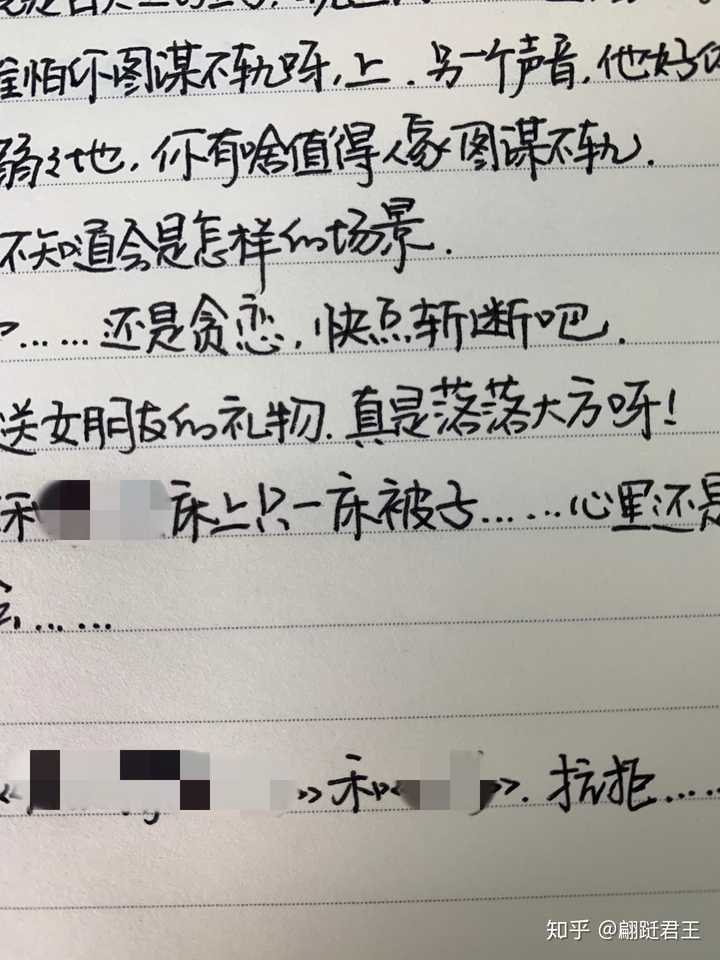 谁怕你图谋不轨呀,上.另一个声音,他好
弱之地,你有啥值得人家图谋不轨.
不知道会是怎样的场景.
……还是贪恋,快点斩断吧.
送女朋友的礼物.真是落落大方呀!
和 床上只一床被子……心里还是
……
« »和« ».抗拒……
知乎 @翩跹君王